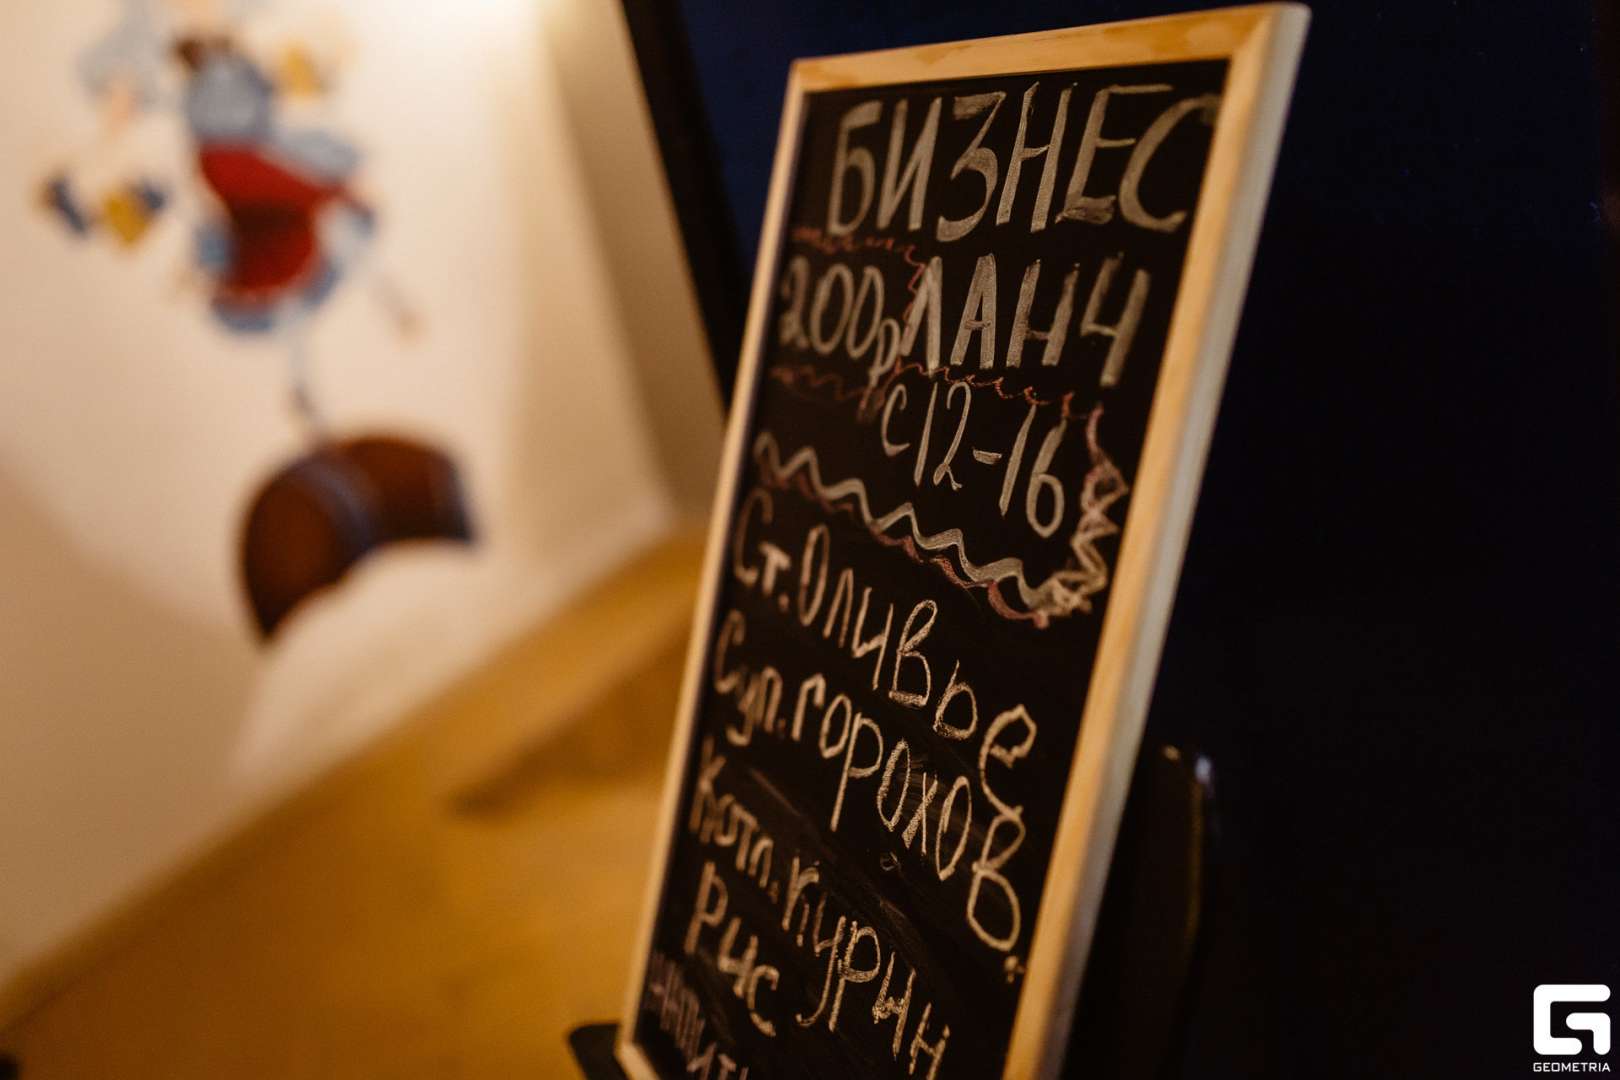 БИЗНЕС
200р ЛАНЧ
с 12-16
Ст. Оливье
Суп. горохов.
Котл. курин
Рис
GEOMETRIA